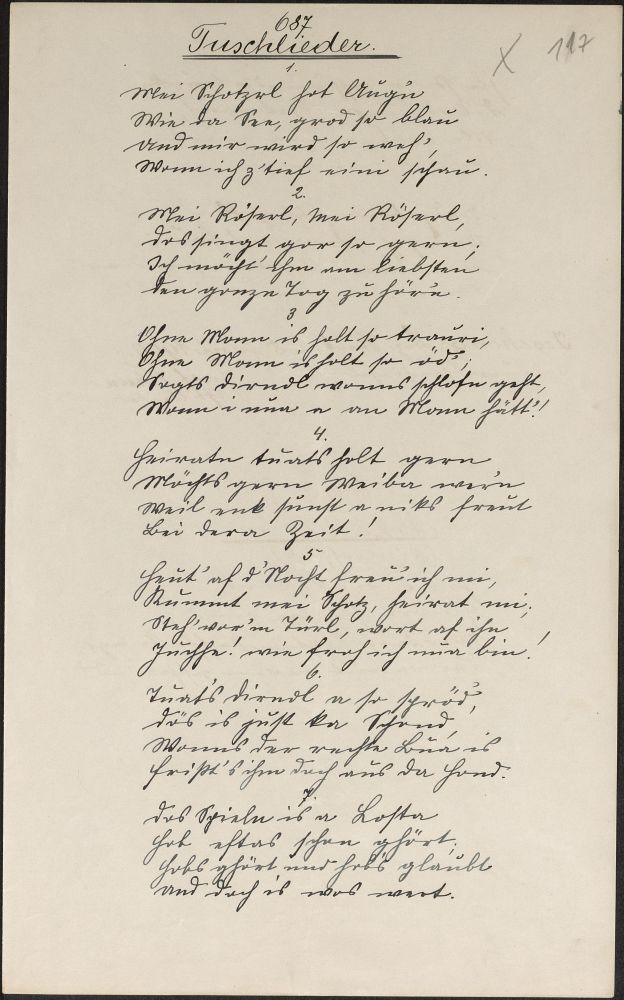 687
Tuschlieder.
X 117
1.
Mei Schatzrl hat Augn
Wie da See, grad so blau
Und mir wird so weh',
Wenn ich z'tief eini schau.
2.
Mei Röserl, mei Röserl,
das singt gar so gern;
Ich möcht' ihm am liebsten
den ganzn Tag zuhör'n.
3
Ohne Mann is halt so trauri,
Ohne Mann is halt so öd';
Sagts Dirndl wanns schlofn geht,
Wann i nua a an Mann hätt'!
4.
Heiratn tuats halt gern
Möchts gern Weiba wern
Weil enk sunst a niks freut
Bei dera Zeit!
5
Heut' af d'Nacht freu' ich mi,
Kummt mei Schatz, heirat mi;
Steh' vor'm Türl, wart af ihn
Juchhe! wie froh ich nua bin!
6.
Tuat's Dirndl a so spröd',
dös is just ka Schand,
Wanns der rechte Bua is
frißt's ihm doch aus da Hand.
7.
Das Spieln is a Losta
Hob eftas schon ghört;
Hobs ghört und hob's glaubt
Und doch is was wert.